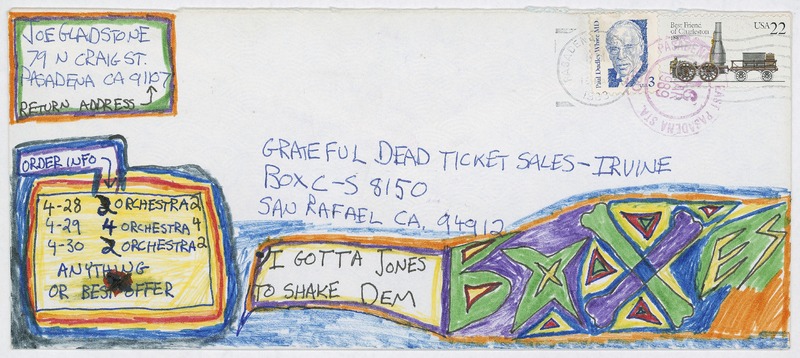 JOE GLADSTONE
79 N CRAIG ST.
PASADENA CA 91107
RETURN ADDRESS
Paul Dudley White MD
3
Best Friend
of Charleston
USA 22
PASADENA
1989
EAST PASADENA STA.
GRATEFUL DEAD TICKET SALES-IRVINE
BOX C-S 8150
SAN RAFAEL CA. 94912
ORDER INFO
4-28 2 ORCHESTRA 2
4-29 4 ORCHESTRA 4
4-30 2 ORCHESTRA 2
ANYTHING
OR BEST OFFER
I GOTTA JONES
TO SHAKE DEM
BONES